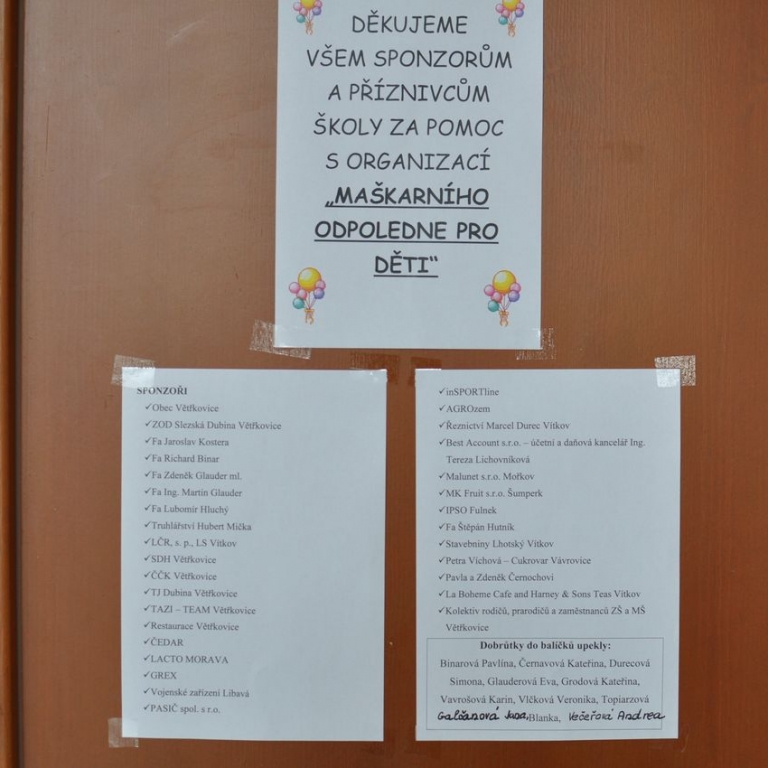 DĚKUJEME
VŠEM SPONZORŮM
A PŘÍZNIVCŮM
ŠKOLY ZA POMOC
S ORGANIZACÍ
„MAŠKARNÍHO
ODPOLEDNE PRO
DĚTI“
SPONZOŘI
✓Obec Větřkovice
✓ZOD Slezská Dubina Větřkovice
✓Fa Jaroslav Kostera
✓Fa Richard Binar
✓Fa Zdeněk Glauder ml.
✓Fa Ing. Martin Glauder
✓Fa Lubomír Hluchý
✓Truhlářství Hubert Mička
✓LČR, s. p., LS Vítkov
✓SDH Větřkovice
✓ČČK Větřkovice
✓TJ Dubina Větřkovice
✓TAZI – TEAM Větřkovice
✓Restaurace Větřkovice
✓ČEDAR
✓LACTO MORAVA
✓GREX
✓Vojenské zařízení Libavá
✓PASIČ spol. s r.o.
✓inSPORTline
✓AGROzem
✓Řeznictví Marcel Durec Vítkov
✓Best Account s.r.o. – účetní a daňová kancelář Ing.
Tereza Lichovníková
✓Malunet s.r.o. Mořkov
✓MK Fruit s.r.o. Šumperk
✓IPSO Fulnek
✓Fa Štěpán Hutník
✓Stavebniny Lhotský Vítkov
✓Petra Víchová – Cukrovar Vávrovice
✓Pavla a Zdeněk Černochovi
✓La Boheme Cafe and Harney & Sons Teas Vítkov
✓Kolektiv rodičů, prarodičů a zaměstnanců ZŠ a MŠ
Větřkovice
Dobrůtky do balíčků upekly:
Binarová Pavlína, Černavová Kateřina, Durecová
Simona, Glauderová Eva, Grodová Kateřina,
Vavrošová Karin, Vlčková Veronika, Topiarzová
Galčanová Jana, Blanka, Večeřová Andrea